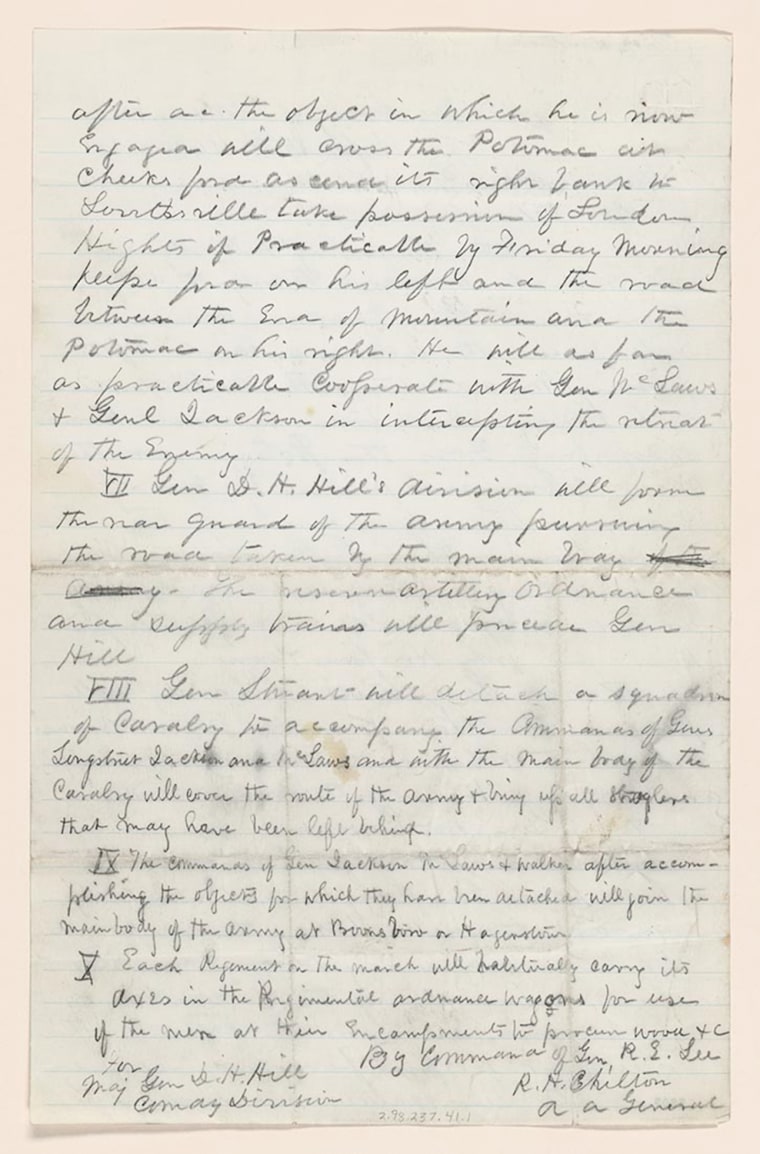 after acc. the object in which he is now
Engaged will cross the Potomac at
Cheeks ford ascend its right bank to
Lovettsville take possession of Loudon
Hights if Practicable by Friday Morning
keeps ford on his left and the road
between the End of Mountain and the
Potomac on his right. He will as far
as practicable Cooperate with Gen McLaws
& Genl Jackson in intercepting the retreat
of the Enemy
VII Gen D. H. Hill's division will form
the rear guard of the army pursuing
the road taken by the main body of the
army. The reserve artillery Ordnance
and supply trains will precede Gen
Hill
VIII Gen Stuart will detach a squadron
of Cavalry to accompany the Commands of Gens
Longstreet Jackson and McLaws and with the main body of the
Cavalry will cover the route of the army & bring up all straglers
that may have been left behind.
IX The commands of Gen Jackson McLaws & walker after accom-
plishing the objects for which they have been detached will join the
main body of the army at Boonsboro or Hagerstown
X Each Regiment on the march will habitually carry its
axes in the Regimental ordnance wagons for use
of the men at their Encampments to procure wood &c
By Command of Gen R. E. Lee
For
Maj Gen D. H. Hill
R. H. Chilton
Comdg Division
A A General
2.98.237.41.1